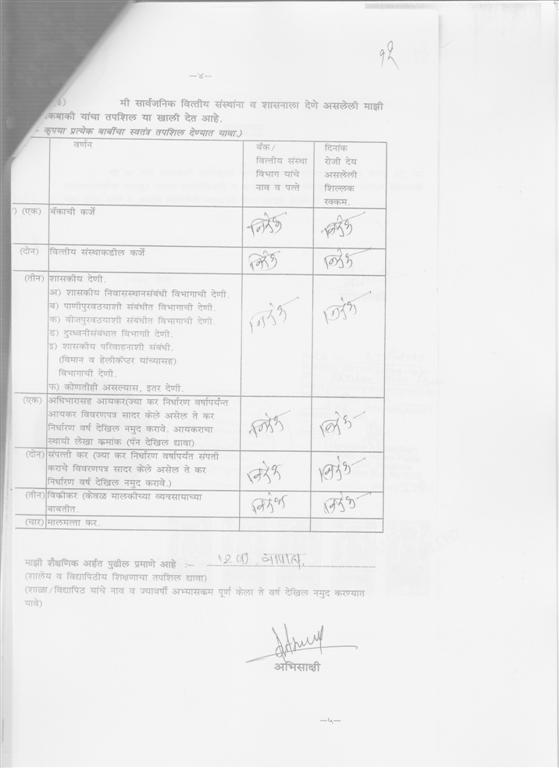 १९
—४—
मी सार्वजनिक वित्तीय संस्थांना व शासनाला देणे असलेली माझी
यांचा तपशिल या खाली देत आहे.
- कृपया प्रत्येक बाबींचा स्वतंत्र तपशिल देण्यात यावा.)
वर्णन
बँक/
वित्तीय संस्था
विभाग यांचे
नाव व पत्ते
दिनांक
रोजी देय
असलेली
शिल्लक
रक्कम.
(एक) बँकाची कर्जे निरंक निरंक
(दोन) वित्तीय संस्थाकडील कर्जे निरंक निरंक
(तीन) शासकीय देणी. निरंक निरंक
अ) शासकीय निवासस्थानसंबंधी विभागाची देणी.
ब) पाणीपुरवठयाशी संबंधीत विभागाची देणी.
क) वीजपुरवठयाशी संबंधीत विभागाची देणी.
ड) दुरध्वनीसंबंधात विभागाी देणी.
इ) शासकीय परिवाहनाशी संबंधी.
(विमान व हेलीकॅप्टर यांच्यासह)
विभागाची देणी.
फ) कोणतीही असल्यास, इतर देणी.
(एक) अधिभारासह आयकर(ज्या कर निर्धारण वर्षापर्यंन्त
आयकर विवरणपत्र सादर केले असेल ते कर
निर्धारण वर्ष देखिल नमुद करावे. आयकराचा
स्थायी लेखा कमांक (पॅन देखिल द्यावा) निरंक निरंक
(दोन) संपत्ती कर (ज्या कर निर्धारण वर्षापर्यत संपती
कराचे विवरणपत्र सादर केले असेल ते कर
निर्धारण वर्ष देखिल नमुद करावे.) निरंक निरंक
(तीन) विकीकर (केवळ मालकीच्या व्यवसायाच्या
बाबतीत. निरंक निरंक
(चार) मालमत्ता कर.
माझी शैक्षणिक अर्हत पुढील प्रमाणे आहे :- १२ वी
(शालेय व विद्यापिठीय शिक्षणाचा तपशिल द्यावा)
(शाळा/विद्यापिठ यांचे नाव व ज्यावर्षी अभ्यासकम पूर्ण केला ते वर्ष देखिल नमुद करण्यात
यावे)
अभिसाक्षी
—५—